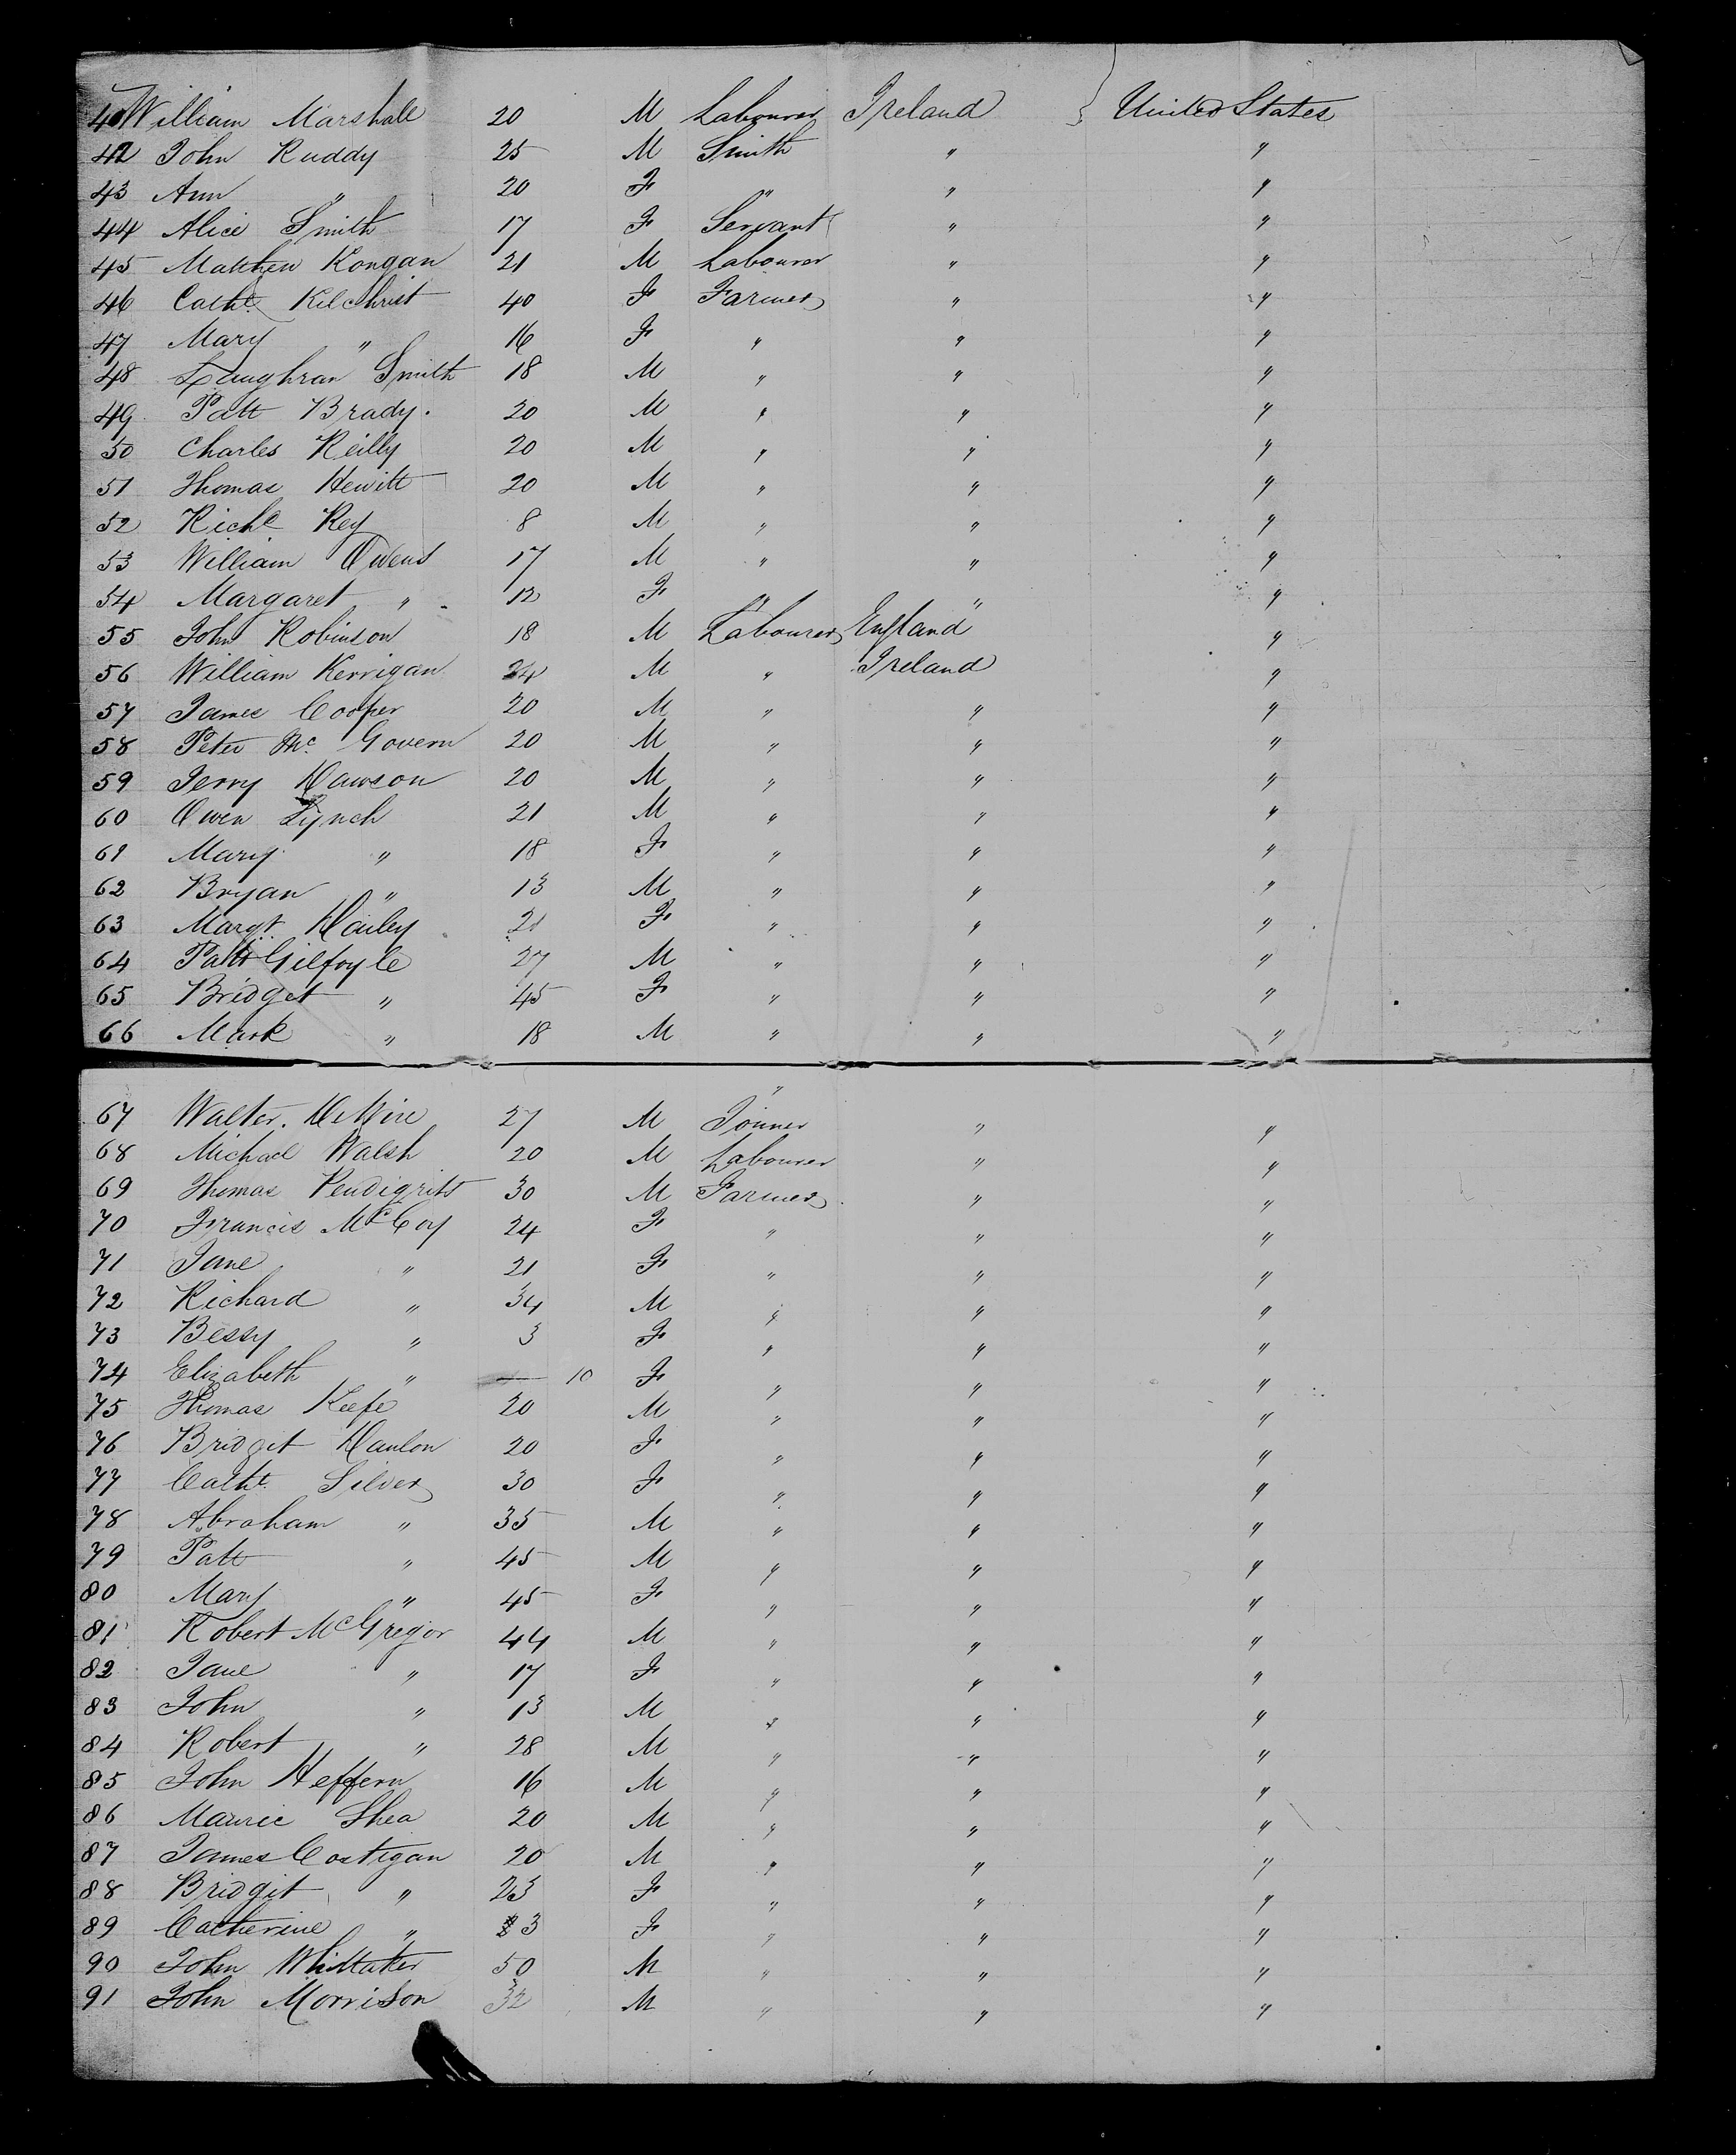 William Marshall 20 M Labourer Ireland } United States
42 John Ruddy 25 M Smith " "
43 Ann " 20 F " " "
44 Alice Smith 17 F Servant " "
45 Matthew Kongan 21 M Labourer " "
46 Cathe Kilchrist 40 F Farmer " "
47 Mary " 16 F " " "
48 Laughran Smith 18 M " " "
49 Patt Brady. 20 M " " "
50 Charles Reilly 20 M " " "
51 Thomas Hewitt 20 M " " "
52 Richd Rey 8 M " " "
53 William Owens 17 M " " "
54 Margaret " 12 F " " "
55 John Robinson 18 M Labourer England "
56 William Kerrigan 24 M " Ireland "
57 James Cooper 20 M " " "
58 Peter Mc Govern 20 M " " "
59 Jerry Dawson 20 M " " "
60 Owen Lynch 21 M " " "
61 Mary " 18 F " " "
62 Bryan " 13 M " " "
63 Margt F " " "
64 Patt Gilfoyle 27 M " " "
65 Bridget " 45 F " " "
66 Mark " 18 M " " "
67 Walter. 27 M Joiner " "
68 Michael Walsh 20 M Labourer " "
69 Thomas 30 M Farmer " "
70 Francis McCoy 24 F " " "
71 Jane " 21 F " " "
72 Richard " 34 M " " "
73 Bessy " 3 F " " "
74 Elizabeth " — 10 F " " "
75 Thomas Keefe 20 M " " "
76 Bridgit Hanlon 20 F " " "
77 Cathe Silver 30 F " " "
78 Abraham " 35 M " " "
79 Patt " 45 M " " "
80 Mary " 45 F " " "
81 Robert McGregor 44 M " " "
82 Jane " 17 F " " "
83 John " 13 M " " "
84 Robert " 28 M " " "
85 John Heffern 16 M " " "
86 Maurice Shea 20 M " " "
87 James Costigan 20 M " " "
88 Bridgit " 23 F " " "
89 Catherine " 3 F " " "
90 John Whittaker 50 M " " "
91 John Morrison 32 M " " "